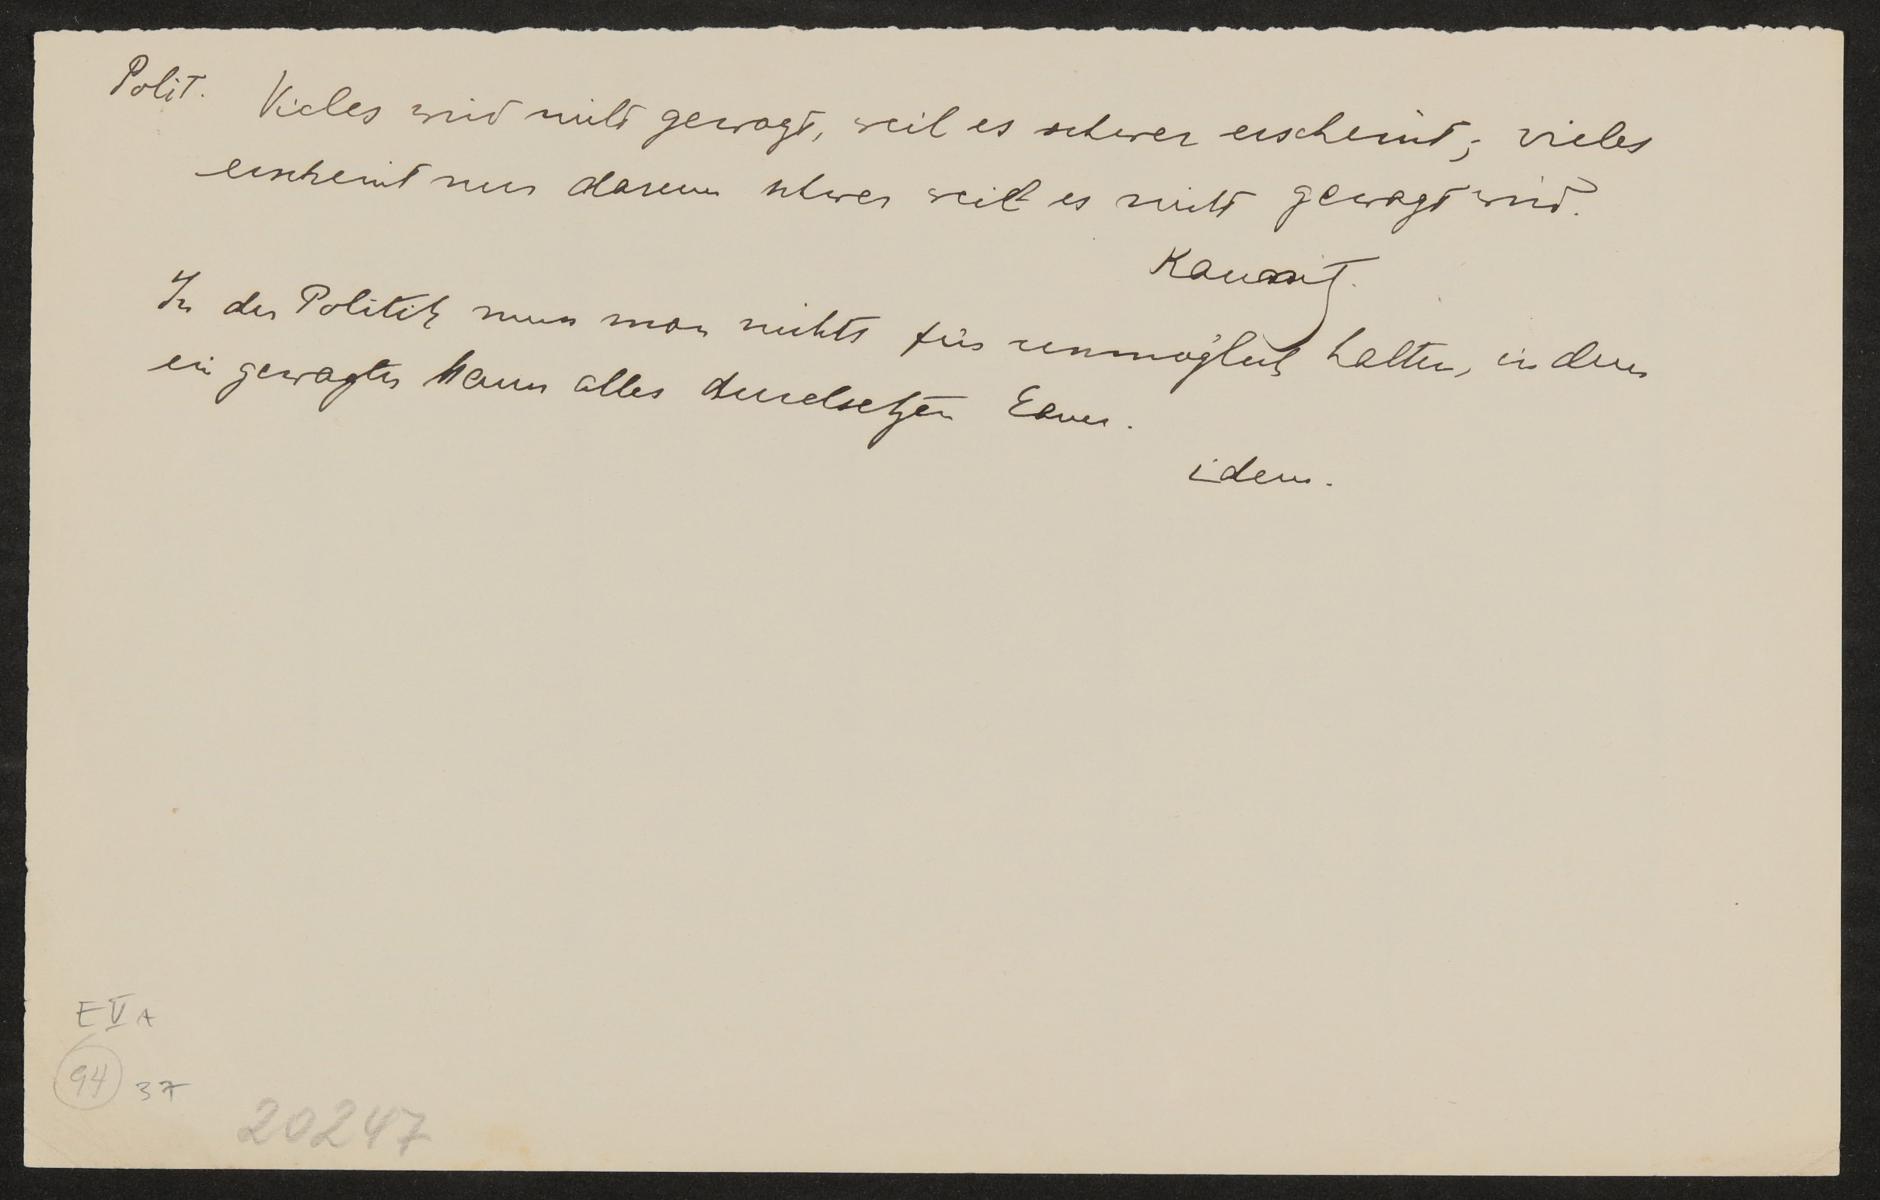 Polit. Vieles wird nicht gewagt, weil es schwer erscheint; vieles
erscheint nur darum schwer weil es nicht gewagt wird.
Kaunitz.
In der Politik muss man nichts für unmöglich halten, indem
ein gewagter Mann alles durchsetzen kann.
idem.
E V A
94 37
20247